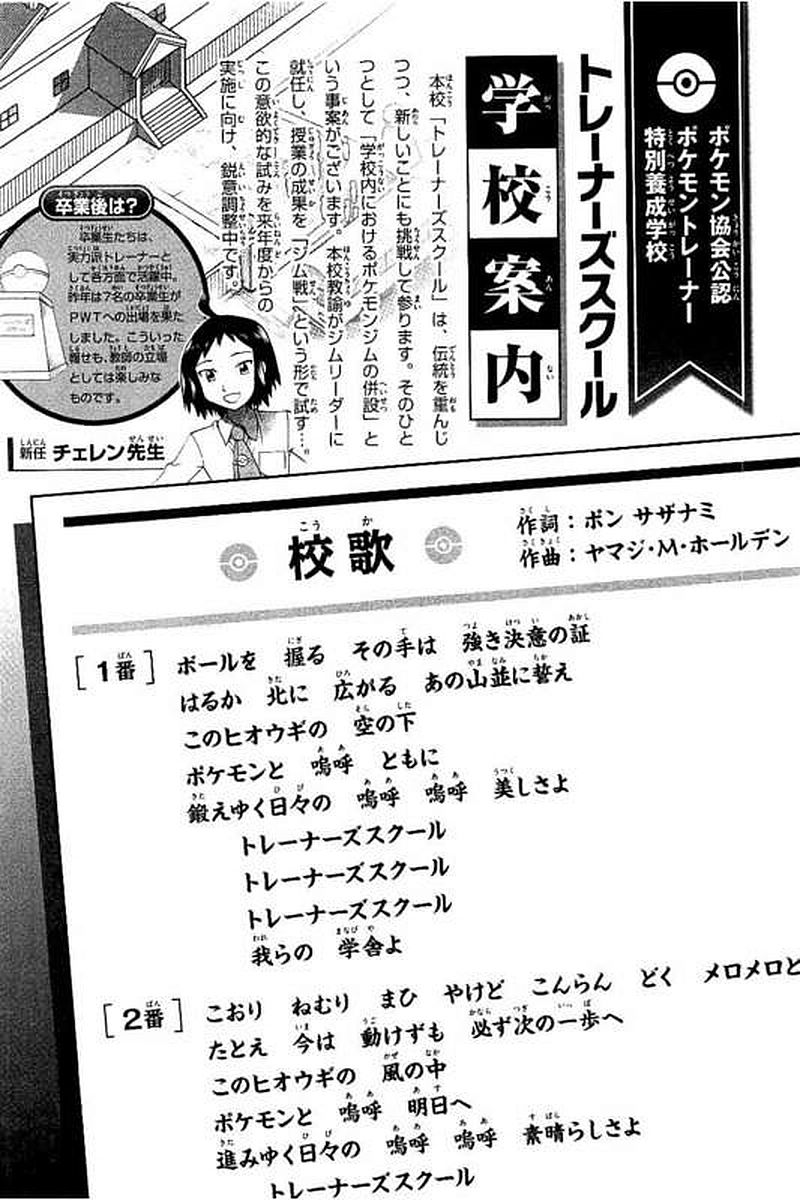 ポケモン協会公認
ポケモントレーナー
特別養成学校
トレーナーズスクール
学校案内
本校「トレーナーズスクール」は、伝統を重んじ
つつ、新しいことにも挑戦して参ります。そのひと
つとして「学校内におけるポケモンジムの併設」と
いう事案がございます。本校教諭がジムリーダーに
就任し、授業の成果を「ジム戦」という形で試す…。
この意欲的な試みを来年度からの
実施に向け、鋭意調整中です。
卒業後は?
卒業生たちは、
実力派トレーナーと
して各方面で活躍中。
昨年は7名の卒業生が
PWTへの出場を果た
しました。こういった
報せも、教師の立場
としては楽しみな
ものです。
新任 チェレン先生
校歌
作詞:ボン サザナミ
作曲:ヤマジ・M・ホールデン
[1番] ボールを 握る その手は 強き決意の証
はるか 北に 広がる あの山並に誓え
このヒオウギの 空の下
ポケモンと 嗚呼 ともに
鍛えゆく日々の 嗚呼 嗚呼 美しさよ
トレーナーズスクール
トレーナーズスクール
トレーナーズスクール
我らの 学舎よ
[2番] こおり ねむり まひ やけど こんらん どく メロメロと
たとえ 今は 動けずも 必ず次の一歩へ
このヒオウギの 風の中
ポケモンと 嗚呼 明日へ
進みゆく日々の 嗚呼 嗚呼 素晴らしさよ
トレーナーズスクール